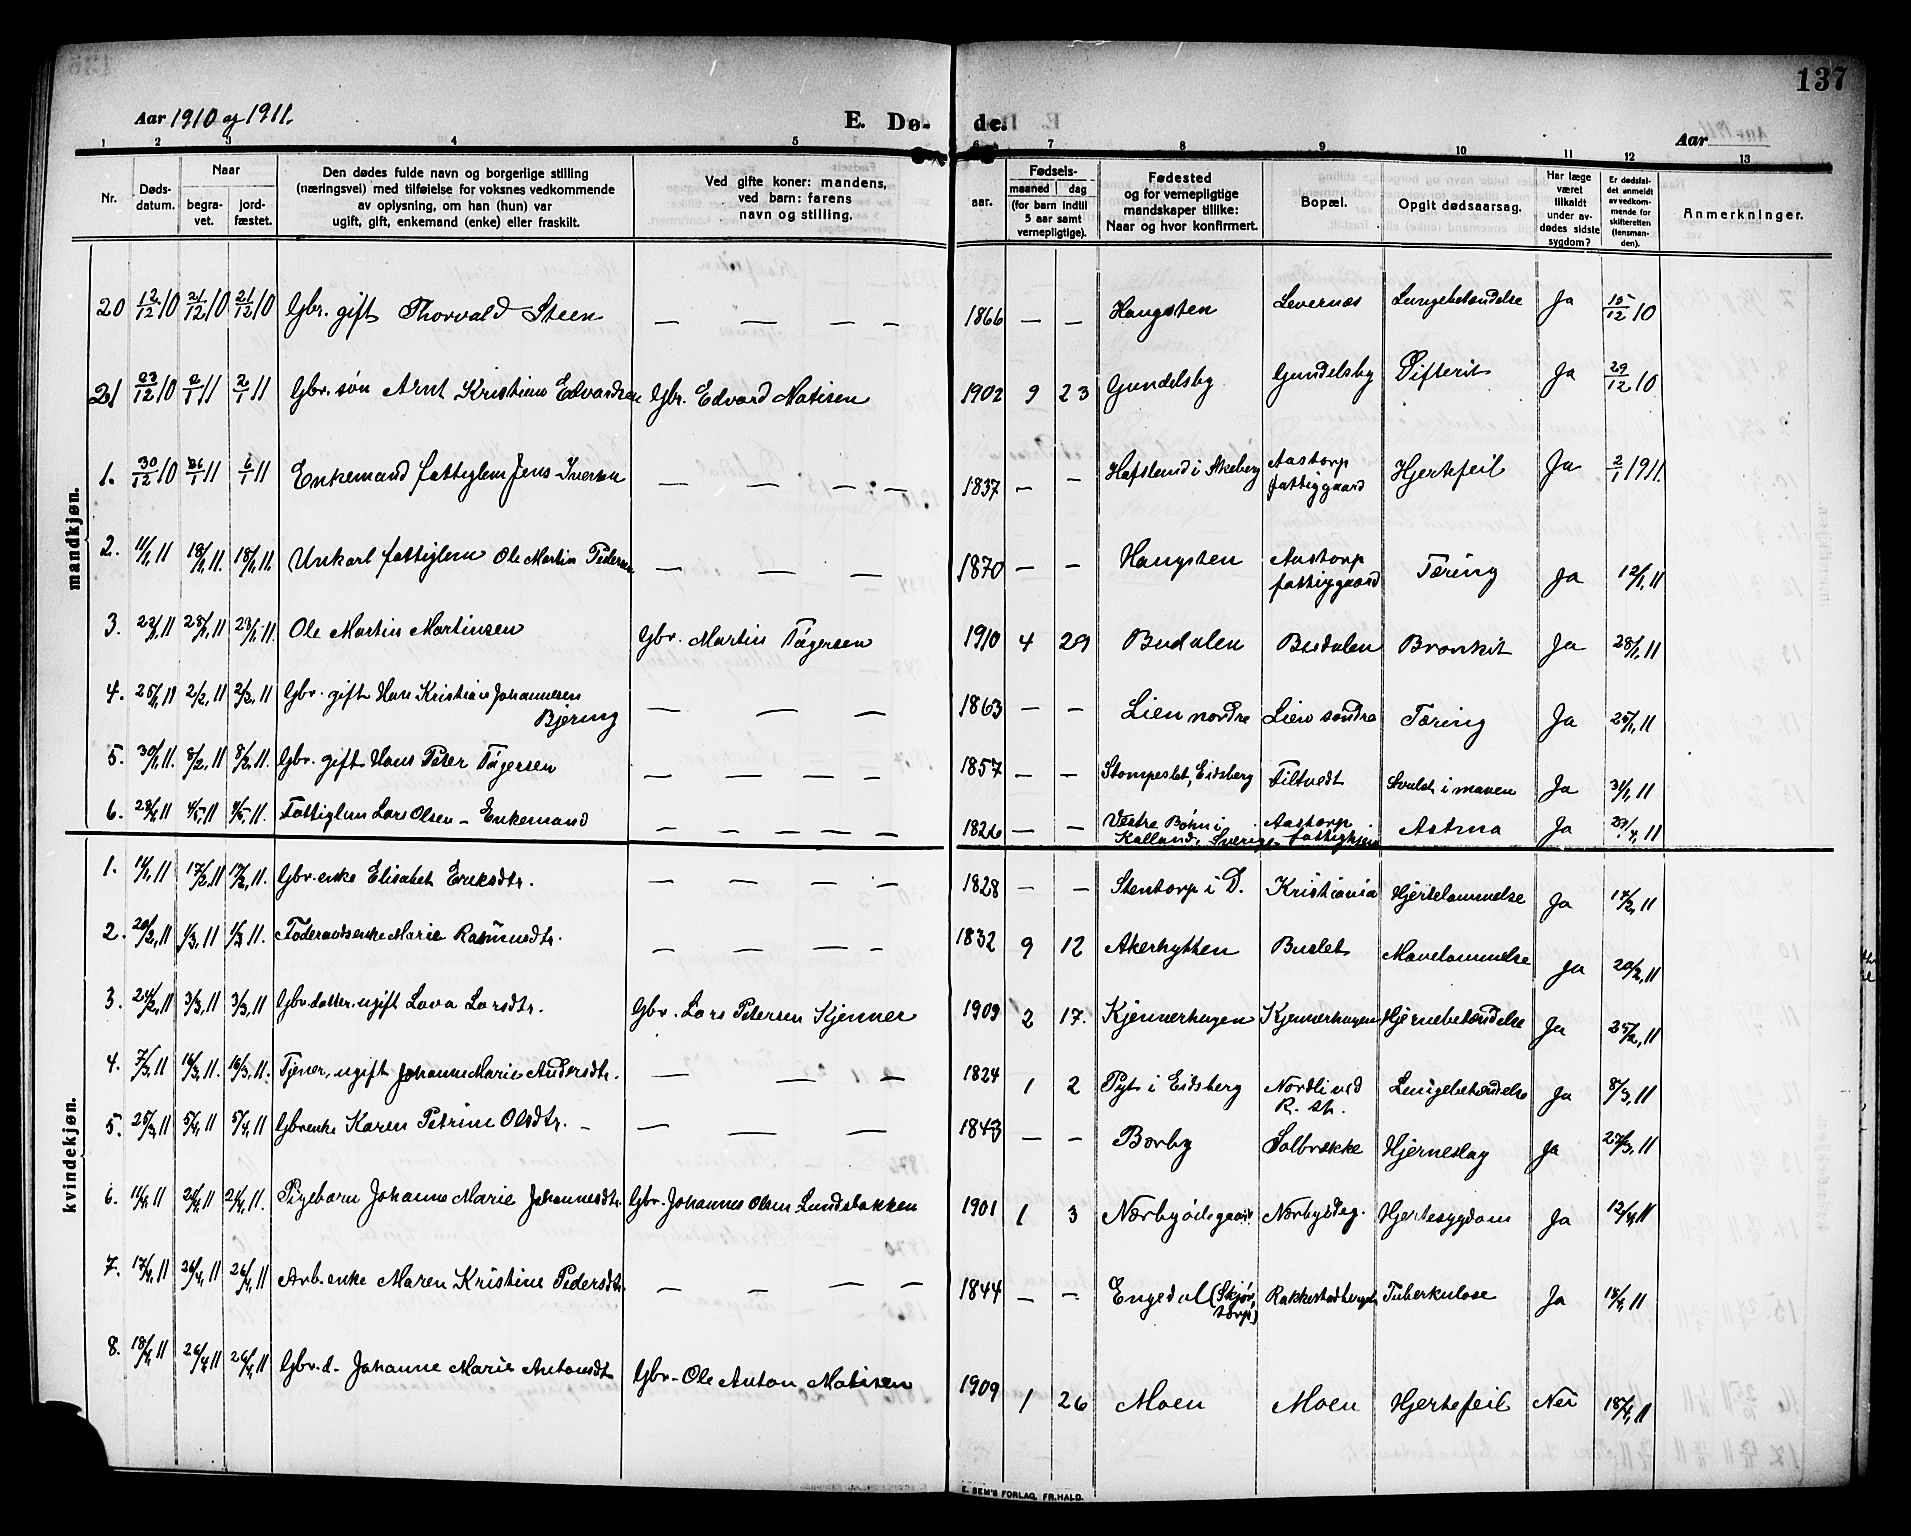 137
Aar 1910 og 1911.
E. Dø- de.
Aar
1 2 3 4 5 6 7 8 9 10 11 12 13
Nr.
Døds-datum.
Naar
begra-vet.
jord-fæstet.
Den dødes fulde navn og borgerlige stilling
(næringsvei) med tilføielse for voksnes vedkommende
av oplysning, om han (hun) var
ugift, gift, enkemand (enke) eller fraskilt.
Ved gifte koner: mandens,
ved barn: farens
navn og stilling.
Fødsels-
aar.
maaned dag
(for barn indtil
5 aar samt
vernepligtige).
Fødested
og for vernepligtige
mandskaper tillike:
Naar og hvor konfirmert.
Bopæl.
Opgit dødsaarsag.
Har læge
været
tilkaldt
under av-
dødes sidste
sygdom?
Er dødsfal-
det anmeldt
av vedkom-
mende for
skifteretten
(lensman-
den).
Anmerkninger.
mandkjøn.
20 12/12 10 21/12 10 21/12 10 Gbr. gift Thorvald Steen — — — — 1866 — — Haugsten Levernæs Lungebetændelse Ja 15/12 10
21 23/12 10 2/1 11 2/1 11 Gbr. søn Arnt Kristian Edvardsen Gbr. Edvard Matisen 1902 9 23 Gundelsby Gundelsby Difterit Ja 29/12 10
1. 30/12 10 6/1 11 6/1 11 Enkemand fattiglem Jens Iversen — — — — 1837 — — Hafslund i Skeberg Aastorp fattiggaard Hjertefeil Ja 2/1 1911.
2. 11/1, 11 18/1, 11. 18/1, 11. Unkarl fattiglem Ole Martin Pedersen — — — 1870 — — Haugsten Aastorp fattiggaard Tæring Ja 12/1, 11
3. 22/1, 11 28/1, 11 28/1, 11 Ole Martin Martinsen Gbr. Martin Tøgersen 1910 4 29 Budalen Budalen Bronkit Ja 28/1, 11
4. 25/1, 11 2/2, 11 2/2, 11 Gbr. gift Han Kristian Johannesen Bjering — — — 1863 — — Lien nordre Lien søndre Tæring Ja 25/1, 11
5. 30/1, 11. 8/2, 11 8/2, 11. Gbr. gift Hans Peter Tøgersen — — — — 1857 — — Stompeslet, Eidsberg Tiltvedt Svulst i maven Ja 31/1, 11
6. 28/4, 11 4/5, 11 4/5, 11. Fattiglem Lars Olsen – Enkemand — — — — — 1826 — — Vestra Bohn i Kalland, Sverige Aastorp Astma Ja 29/4, 11
kvindekjøn.
1. 14/1, 11 17/2, 11 17/2, 11. Gbr. enke Elisabet Eriksdtr. — — — — 1828 — — Stentorp i D. Kristiania Hjertelammelse Ja 17/2, 11
2. 20/2, 11 1/3, 11 1/3 11. Føderaadsenke Marie Rasmusdtr. — — — — 1832 9 12 Akerhytten Buslet Mavelammelse Ja 20/2, 11
3. 24/2, 11 3/3, 11 3/3, 11 Gbr. datter, ugift Lava Larsdtr. Gbr. Lars Petersen Kjenner 1909 2 17. Kjennerhagen Kjennerhagen Hjernebetændelse Ja 25/2, 11
4. 7/3, 11 16/3, 11. 16/3, 11. Tjener, ugift Johanne Marie Andersdtr. — — — 1824 1 2 Pyt i Eidsberg Nordli ved R. st. Lungebetændelse Ja 8/3, 11
5. 25/3, 11 5/4, 11 5/4, 11 Gbrenke Karen Petrine Olsdtr. – — — — 1843 — — Børby Solbrække Hjerneslag Ja 27/3, 11
6. 11/4, 11 21/4, 11 21/4, 11. Pigebarn Johanne Marie Johannesdtr. Gbr. Johannes Olsen Lundsbakken 1901 1 3 Nærbyødegaard Nærbyødeg. Hjertesygdom Ja 12/4, 11
7. 17/4, 11 26/4, 11 26/4, 11 Arb. enke Maren Kristine Pedersdtr. — — — — 1844 — — Engedal (Skjørtorp) Tuberkulose Ja 18/4, 11
8. 18/4, 11 26/4 11 26/4, 11 Gbr. d. Johanne Marie Antonsdtr Gbr. Ole Anton Matisen 1909 1 26 Moen Moen Hjertefeil Nei 18/4, 11
E. SEM'S FORLAG, FR.HALD.